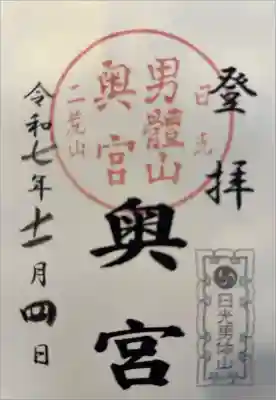 登拝
日光
男體山
奥宮
二荒山
奥宮
令和七年十一月四日
日光男体山